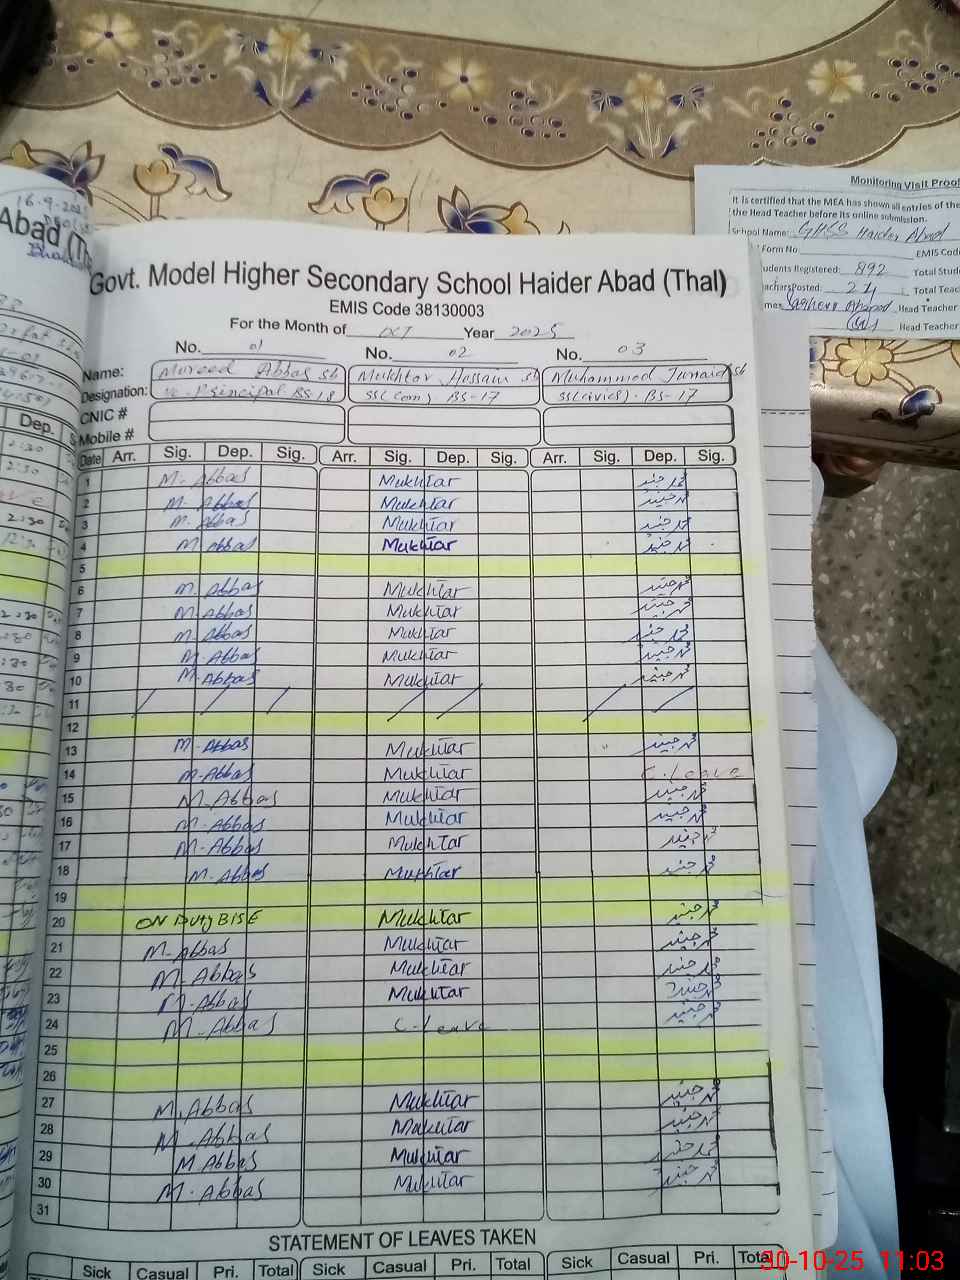 Monitoring Visit Proof
It is certified that the MEA has shown all entries of the
the Head Teacher before its online submission.
School Name: GHSS Haider Abad
Form No. EMIS Code
udents Registered: 892 Total Stud
achers Posted: 24 Total Teac
Head Teacher
Head Teacher
16-9-202
Abad (Th
Govt. Model Higher Secondary School Haider Abad (Thal)
EMIS Code 38130003
For the Month of OCT Year 2025
No. 01 No. 02 No. 03
Name: Mureed Abbas sb Mukhtar Hussain sb Muhammad Junaid sb
Designation: V. Principal BS-18 SS(Com). BS-17 SS(civics). BS-17
CNIC #
Mobile #
Date Arr. Sig. Dep. Sig. Arr. Sig. Dep. Sig. Arr. Sig. Dep. Sig.
1 M. Abbas Mukhtar محمد جنید
2 M. Abbas Mukhtar محمد جنید
3 M. Abbas Mukhtar محمد جنید
4 M. Abbas Mukhtar محمد جنید
5
6 M. Abbas Mukhtar محمد جنید
7 M. Abbas Mukhtar محمد جنید
8 M. Abbas Mukhtar محمد جنید
9 M. Abbas Mukhtar محمد جنید
10 M. Abbas Mukhtar محمد جنید
11
12
13 M. Abbas Mukhtar محمد جنید
14 M. Abbas Mukhtar C. Leave
15 M. Abbas Mukhtar محمد جنید
16 M. Abbas Mukhtar محمد جنید
17 M. Abbas Mukhtar محمد جنید
18 M. Abbas Mukhtar محمد جنید
19
20 ON Duty BISE Mukhtar محمد جنید
21 M. Abbas Mukhtar محمد جنید
22 M. Abbas Mukhtar محمد جنید
23 M. Abbas Mukhtar محمد جنید
24 M. Abbas C. Leave محمد جنید
25
26
27 M. Abbas Mukhtar محمد جنید
28 M. Abbas Mukhtar محمد جنید
29 M Abbas Mukhtar محمد جنید
30 M. Abbas Mukhtar محمد جنید
31
STATEMENT OF LEAVES TAKEN
Sick Casual Pri. Total Sick Casual Pri. Total Sick Casual Pri. Total
30-10-25 11:03